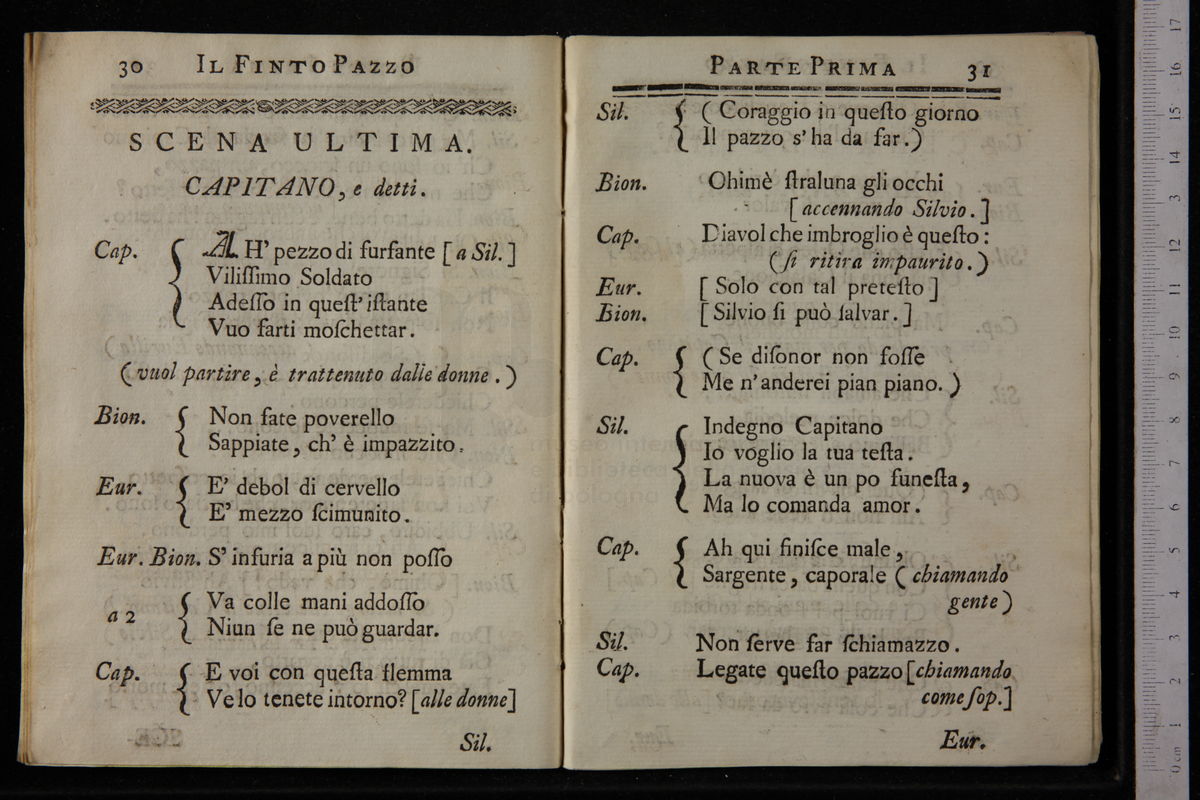 30 IL FINTO PAZZO
SCENA ULTIMA.
CAPITANO, e detti.
Cap. AH' pezzo di furfante [a Sil.]
Viliſſimo Soldato
Adeſſo in queſt' iſtante
Vuo farti moſchettar.
(vuol partire, è trattenuto dalle donne.)
Bion. Non fate poverello
Sappiate, ch' è impazzito.
Eur. E' debol di cervello
E' mezzo ſcimunito.
Eur. Bion. S' infuria a più non poſſo
a 2 Va colle mani addoſſo
Niun ſe ne può guardar.
Cap. E voi con queſta flemma
Ve lo tenete intorno? [alle donne]
Sil.
PARTE PRIMA 31
Sil. (Coraggio in queſto giorno
Il pazzo s' ha da far.)
Bion. Ohimè ſtraluna gli occhi
[accennando Silvio.]
Cap. Diavol che imbroglio è queſto:
(ſi ritira impaurito.)
Eur. [Solo con tal preteſto]
Bion. [Silvio ſi può ſalvar.]
Cap. (Se diſonor non foſſe
Me n' anderei pian piano.)
Sil. Indegno Capitano
Io voglio la tua teſta.
La nuova è un po funeſta,
Ma lo comanda amor.
Cap. Ah qui finiſce male,
Sargente, caporale (chiamando
gente)
Sil. Non ſerve far ſchiamazzo.
Cap. Legate queſto pazzo [chiamando
come ſop.]
Eur.
0 cm 1 2 3 4 5 6 7 8 9 10 11 12 13 14 15 16 17